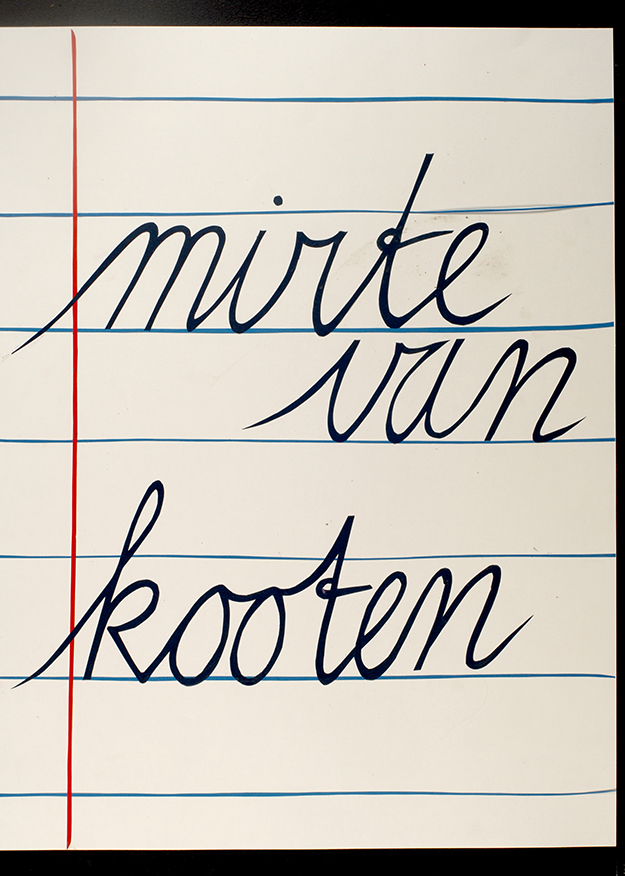 mirte
van
kooten